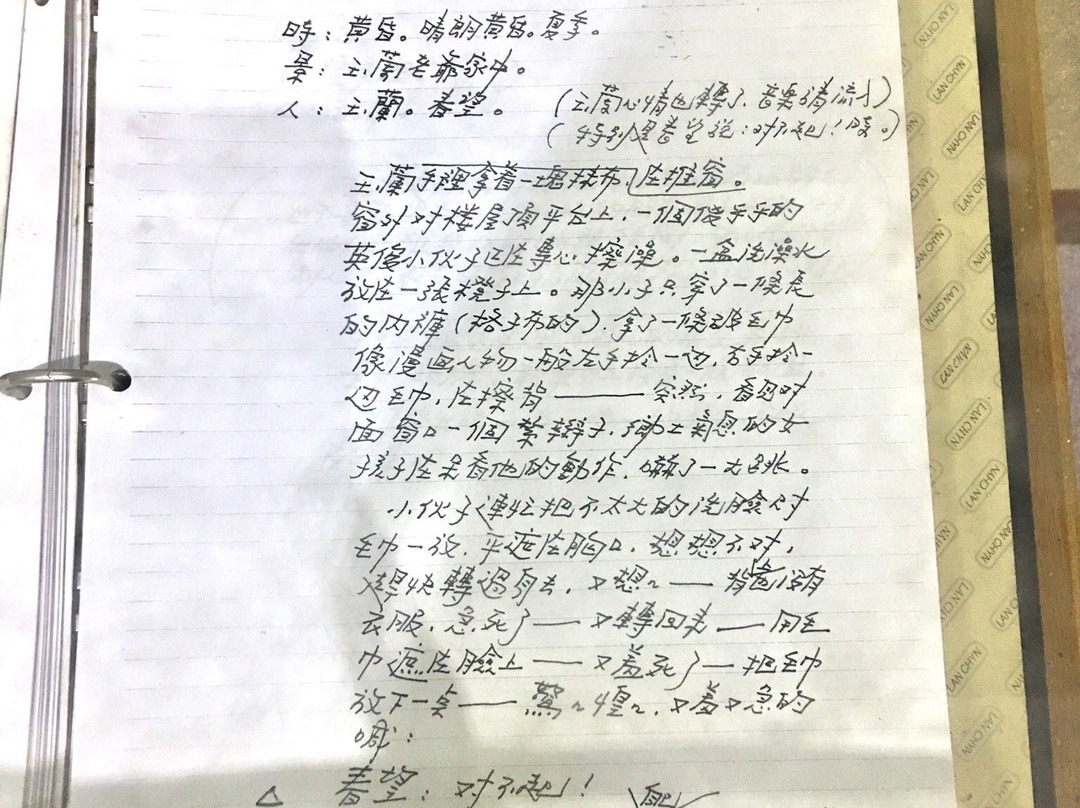 時：黃昏。晴朗黃昏。夏季。
景：玉蘭老爺家中。
人：玉蘭。春望。（玉蘭心情也轉了，音樂清流）
（特別是春望說：对不起！段。）
玉蘭手裡拿着一塊抹布，在推窗。
窗外对楼屋頂平台上，一個傻乎乎的
英俊小伙子正在專心擦澡。一盆洗澡水
放在一張櫈子上。那小子只穿了一條長
的內褲（格子布的），拿了一條破毛巾
像漫画人物一般左手拎一边，右手拎一
边毛巾，在擦背——突然，看到对
面窗口一個紮辮子，鄉土氣息的女
孩子在呆看他的動作，嚇了一大跳。
小伙子連忙把不太大的洗臉
毛巾一放，平遮在胸口，想想不对，
趕快轉過身去，又想想——背也沒有
衣服，急死了——又轉回来——用毛
巾遮在臉上——又羞死了——把毛巾
放下一点——驚驚惶惶，又羞又急的
喊：
△ 春望：对不起！
LAN CHYN
LAN CHYN
LAN CHYN
LAN CHYN
LAN CHYN
LAN CHYN
LAN CHYN
LAN CHYN
LAN CHYN
LAN CHYN